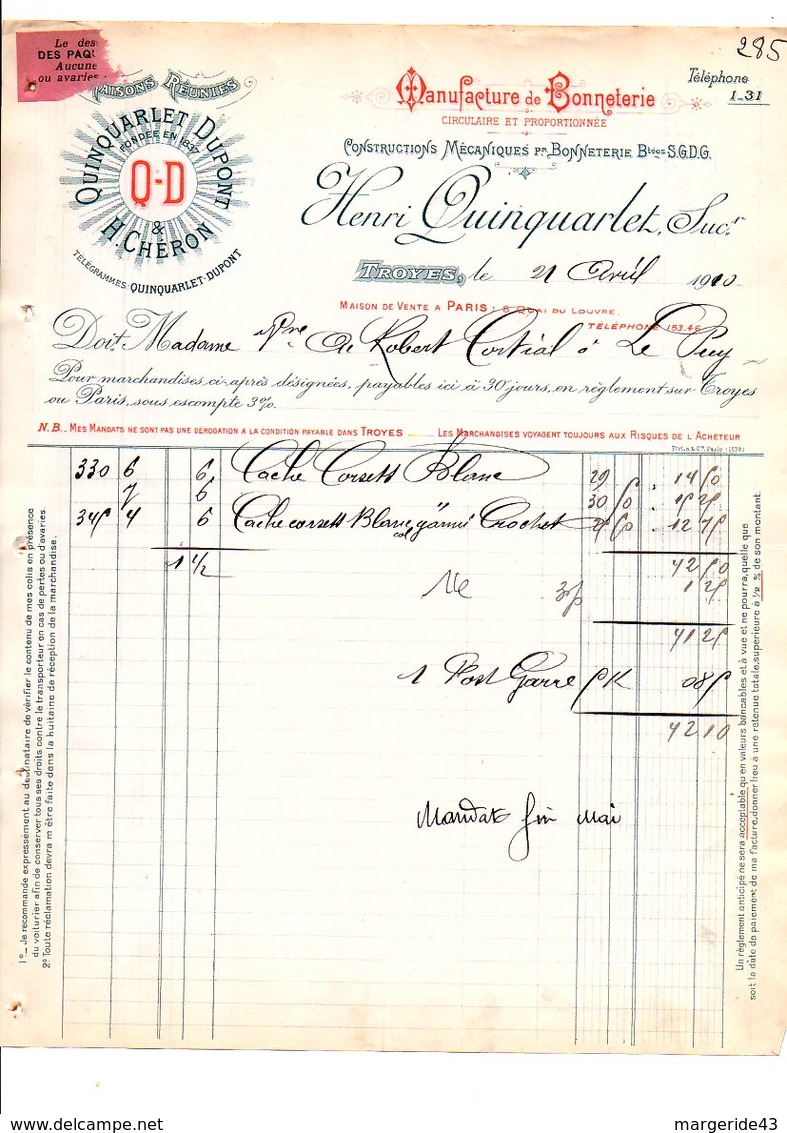 285
Le des
DES PAQU
Aucune
ou avaries
MAISONS RÉUNIES
QUINQUARLET DUPONT
FONDÉE EN 1837
Q-D
& H. CHÉRON
TÉLÉGRAMMES-QUINQUARLET-DUPONT
Manufacture de Bonneterie
CIRCULAIRE ET PROPORTIONNÉE
Téléphone
1-31
CONSTRUCTIONS MÉCANIQUES Pr. BONNETERIE Btées S.G.D.G.
Henri Quinquarlet, Sucr.
TROYES, le 21 Avril 1910
MAISON DE VENTE A PARIS: 8 QUAI DU LOUVRE,
TÉLÉPHONE 153.46
Doit Madame Vve de Robert Cortial à Le Puy
Pour marchandises, ci-après désignées, payables ici à 30 jours, en règlement sur Troyes
ou Paris, sous escompte 3%.
N.B._ MES MANDATS NE SONT PAS UNE DÉROGATION A LA CONDITION PAYABLE DANS TROYES LES MARCHANDISES VOYAGENT TOUJOURS AUX RISQUES DE L'ACHETEUR
330 6 6 Cache Corsets Blanc 29 14 50
7 6 30 50 15 25
345 4 6 Cache corsets Blanc col garni Crochet 25 50 12 75
1 1/2 42 50
3% 1 25
41 25
1 Post Garre 5K 0 85
42 10
Mandat fin Mai
1º_ Je recommande expressément au destinataire de vérifier le contenu de mes colis en présence
du voiturier afin de conserver tous ses droits contre le transporteur en cas de pertes ou d'avaries
2º Toute réclamation devra m être faite dans la huitaine de réception de la marchandise.
Un règlement anticipé ne sera acceptable qu en valeurs bancables et à vue et ne pourra, quelle que
soit la date de paiement de ma facture, donner lieu à une retenue totale, supérieure à ½ % de son montant.
margeride43